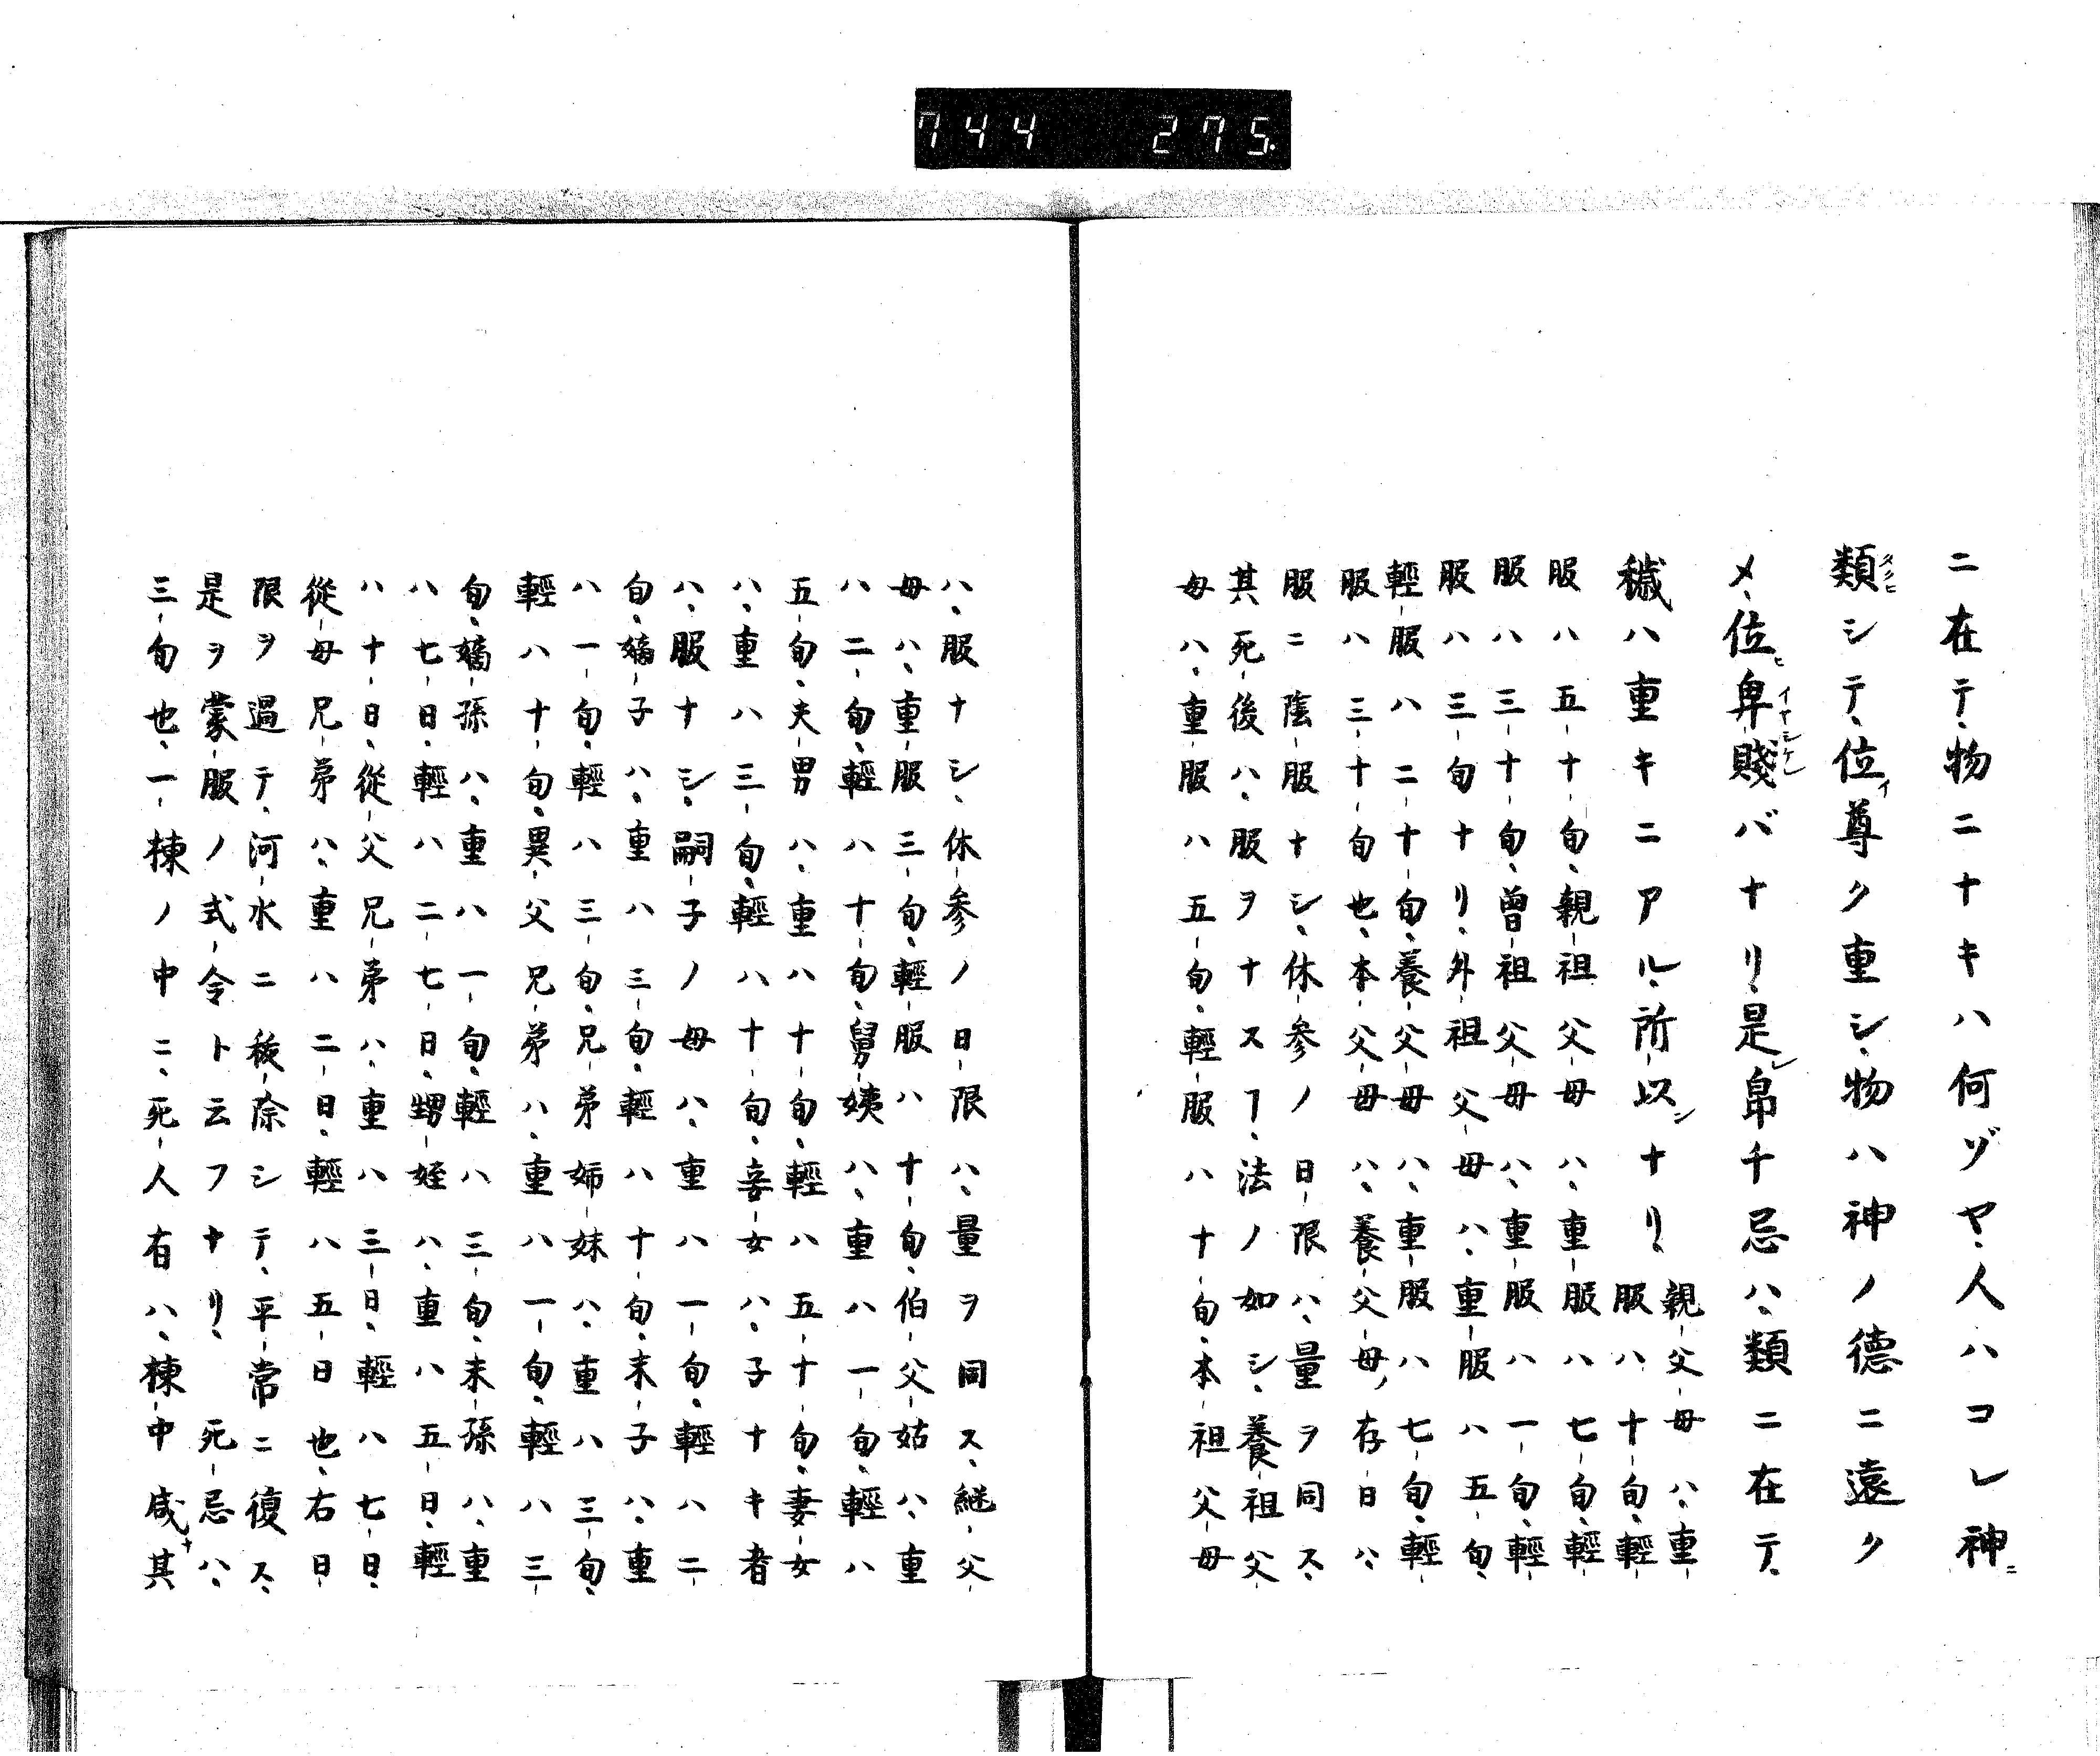 744 275.
ニ在テ、物ニナキハ何ヅヤ、人ハコレ神ニ
類シテ、位尊ク重シ、物ハ神ノ德ニ遠ク
メ、位卑-賤バナリ、是レ帛チ忌ハ、類ニ在テ、
穢ハ重キニアル、所-以シナリ、親-父-母ハ、重-
服ハ十-旬、輕-
服ハ五-十-旬、親-祖父-母ハ、重-服ハ七-旬、輕-
服ハ三-十-旬、曾-祖父-母ハ、重-服ハ一-旬、輕-
服ハ三-旬ナリ、外-祖父-母ハ、重-服ハ五-旬、
輕-服ハ二-十-旬、養-父-母ハ、重-服ハ七-旬、輕-
服ハ三-十-旬也、本-父-母ハ、養-父-母ノ存日ハ、
服ニ陰-服ナシ、休-参ノ日-限ハ、量ヲ同ス、
其死後ハ、服ヲナスヿ、法ノ如シ、養-祖父-
母ハ、重-服ハ五-旬、輕-服ハ十-旬、本-祖父-母
ハ、服ナシ、休-参ノ日-限ハ、量ヲ同ス、継-父-
母ハ、重-服三-旬、輕-服ハ十-旬、伯-父-姑ハ、重
ハ二-旬、輕ハ十-旬、舅-姨ハ、重ハ一-旬、輕ハ
五-旬、夫-男ハ、重ハ十-旬、輕ハ五-十-旬、妻-女
ハ、重ハ三-旬、輕ハ十-旬、妾-女ハ、子ナキ者
ハ、服ナシ、嗣-子ノ母ハ、重ハ一-旬、輕ハ二-
旬、嫡-子ハ、重ハ三-旬、輕ハ十-旬、末-子ハ、重
ハ一-旬、輕ハ三-旬、兄-弟姉-妹ハ、重ハ三-旬、
輕ハ十-旬、異-父兄-弟ハ、重ハ一-旬、輕ハ三-
旬、嫡-孫ハ、重ハ一-旬、輕ハ三-旬、末-孫ハ、重
ハ七-日、輕ハ二-七-日、甥-姪ハ、重ハ五-日、輕
ハ十-日、從-父兄-弟ハ、重ハ三-日、輕ハ七-日、
從-母兄-弟ハ、重ハ二-日、輕ハ五-日也、右日-
限ヲ過テ、河-水ニ祓-除シテ、平-常ニ復ス、
是ヲ蒙-服ノ式-令ト云フナリ、死-忌ハ、
三-旬也、一-棟ノ中ニ、死-人有ハ、棟-中咸ナ其